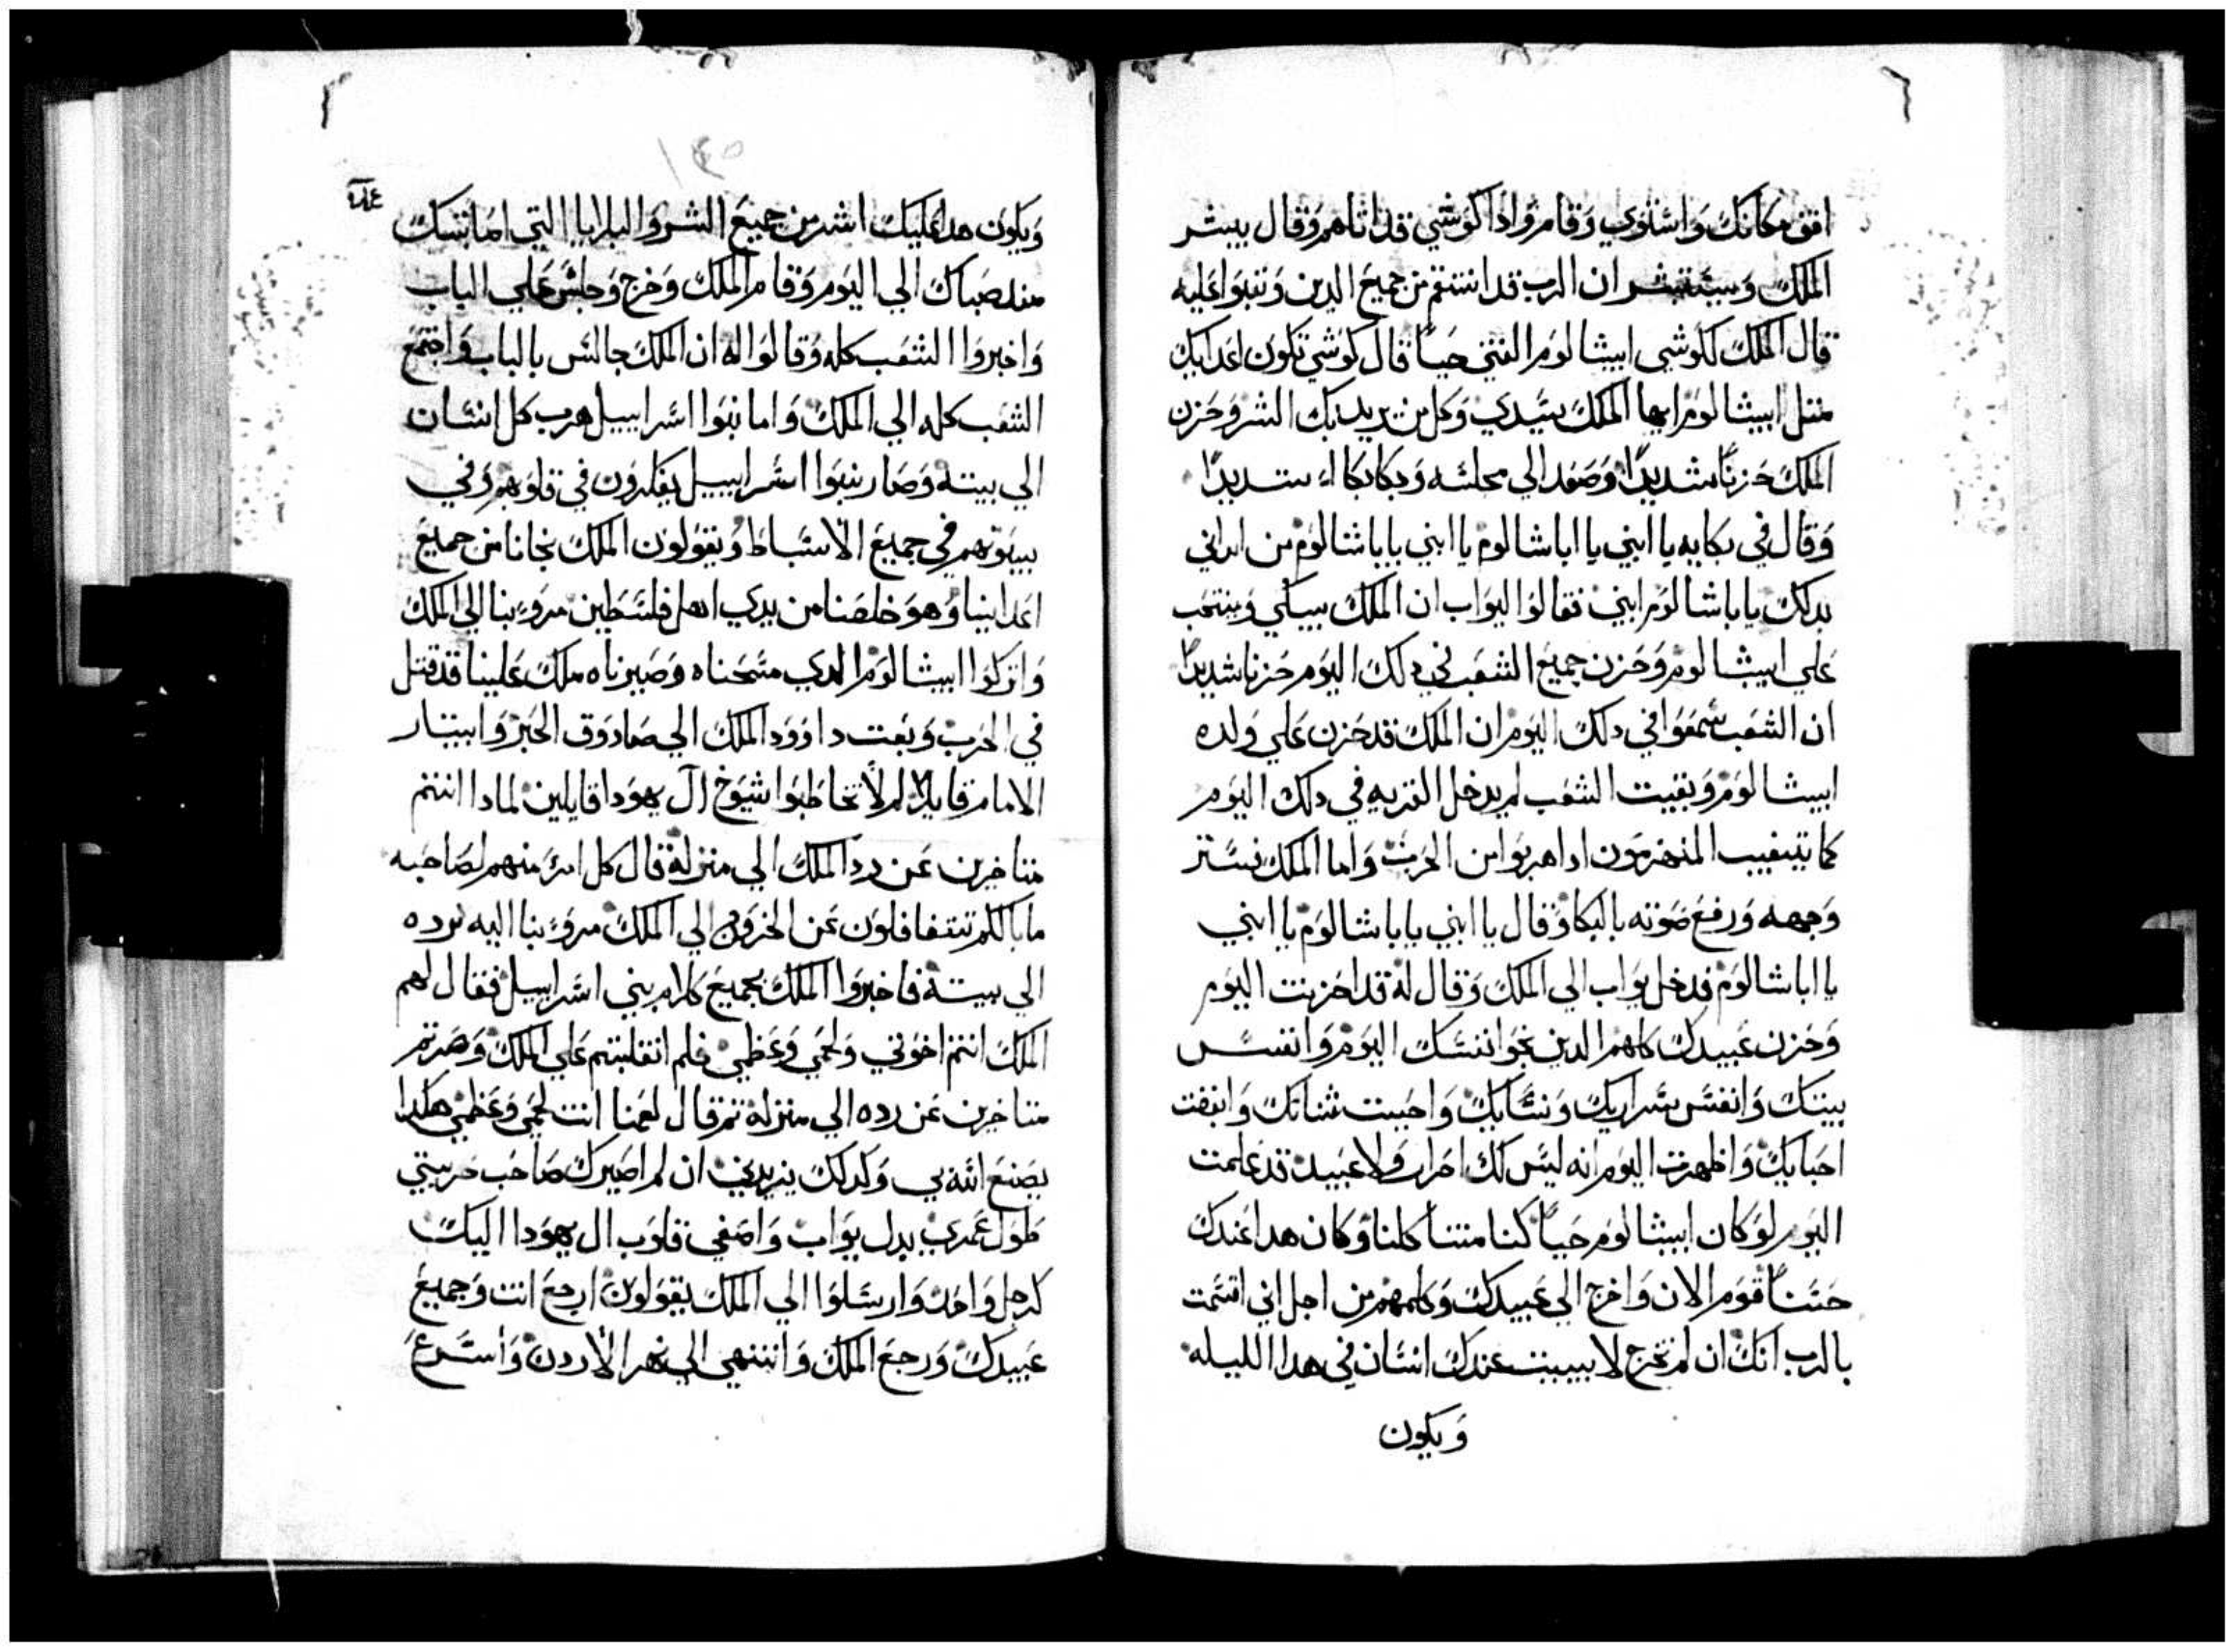 افق مكانك واستوي وقام واذا كوشي قد اتاهم وقال يبشر
الملك وسيتبشر ان الرب قد انتقم من جميع الدين وتبوا عليه
قال الملك لكوشي ابيشالوم الفتي حياً قال كوشي تكون اعدايك
متل ابيشالوم ايها الملك سيدي وكل من يريد بك الشر وحزن
الملك حزناً شديداً وصعد الي مجلسه وبكا بكاء شديداً
وقال في بكايه يا ابني يا اباشالوم يا ابني يا باشالوم من اراني
بدلك يا باشالوم ابني فقالوا ليواب ان الملك يبكي وينتحب
علي ابيشالوم وحزن جميع الشعب في دلك اليوم حزنا شديداً
ان الشعب سمعوا في دلك اليوم ان الملك قد حزن علي ولده
ابيشالوم وبقيت الشعب لم يدخل القريه في دلك اليوم
كما يتغيب المنهزمون ادا هربوا من الحرب واما الملك فستر
وجهه ورفع صوته بالبكا وقال يا ابني يا باشالوم يا ابني
يا اباشالوم فدخل يواب الي الملك وقال له قد احزنت اليوم
وحزن عبيدك كلهم الدين نجوا نفسك اليوم وانفس
بيتك وانفس سراريك ونسايك واحببت شناتك وابغضت
احبابك واظهرت اليوم انه ليس لك احرار ولا عبيد قد علمت
اليوم لو كان ابيشالوم حياً كنا متنا كلنا وكان هدا عندك
حسناً قوم الان واخرج الي عبيدك وكلمهم من اجل اني اقسمت
بالرب انك ان لم تخرج لا يبيت عندك انسان في هدا الليله
ويكون
ويكون هدا عليك اشد من جميع الشر والبلايا التي اصابتك
مند صباك الي اليوم وقام الملك وخرج وجلس علي الباب
واخبروا الشعب كله وقالوا له ان الملك جالس بالباب واجتمع
الشعب كله الي الملك واما بنوا اسراييل هرب كل انسان
الي بيته وصار بنوا اسراييل يفكرون في قلوبهم وفي
بيوتهم في جميع الاسباط ويقولون الملك نجانا من جميع
اعداينا وهو خلصنا من يدي اهل فلسطين مروء بنا الي الملك
واتركوا ابيشالوم الدي مسحناه وصيرناه ملك علينا قد قتل
في الحرب وبعت داوود الملك الي صادوق الحبر وابيتار
الامام قايلاً لم لا تخاطبوا شيوخ آل يهودا قايلين لمادا انتم
متاخرين عن رد الملك الي منزله قال كل امرء منهم لصاحبه
ما بالكم تتغافلون عن الخروج الي الملك مروء بنا اليه نرده
الي بيته فاخبروا الملك بجميع كلام بني اسراييل فقال لهم
الملك انتم اخوتي ولحمي وعظمي فلم انقلبتم علي الملك وصرتم
متاخرين عن رده الي منزله تم قال لعمسا انت لحمي وعظمي هكدا
يصنع الله بي وكدلك يزيدني ان لم اصيرك صاحب حربتي
طول عمري بدل يواب واصفي قلوب ال يهودا اليك
كرجل واحد وارسلوا الي الملك يقولون ارجع انت وجميع
عبيدك ورجع الملك وانتهي الي نهر الاردن واسرع